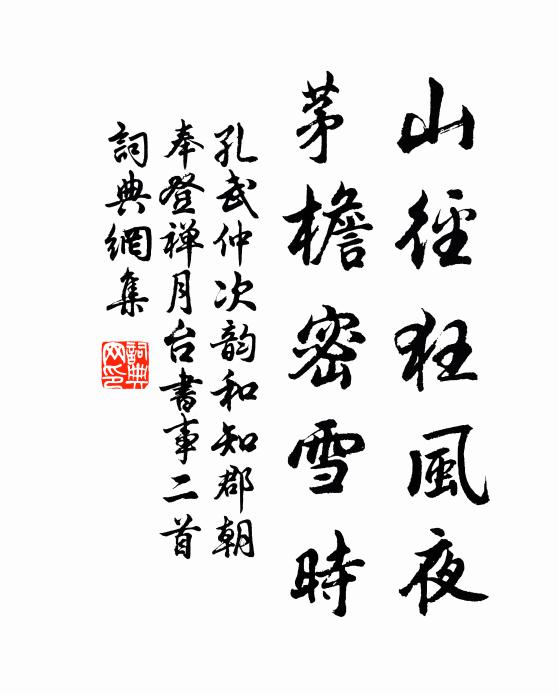 山徑狂風夜
茅檐密雪時
孔武仲次韵和知郡朝
奉登禅月台書事二首
詞典網集
詞典網印